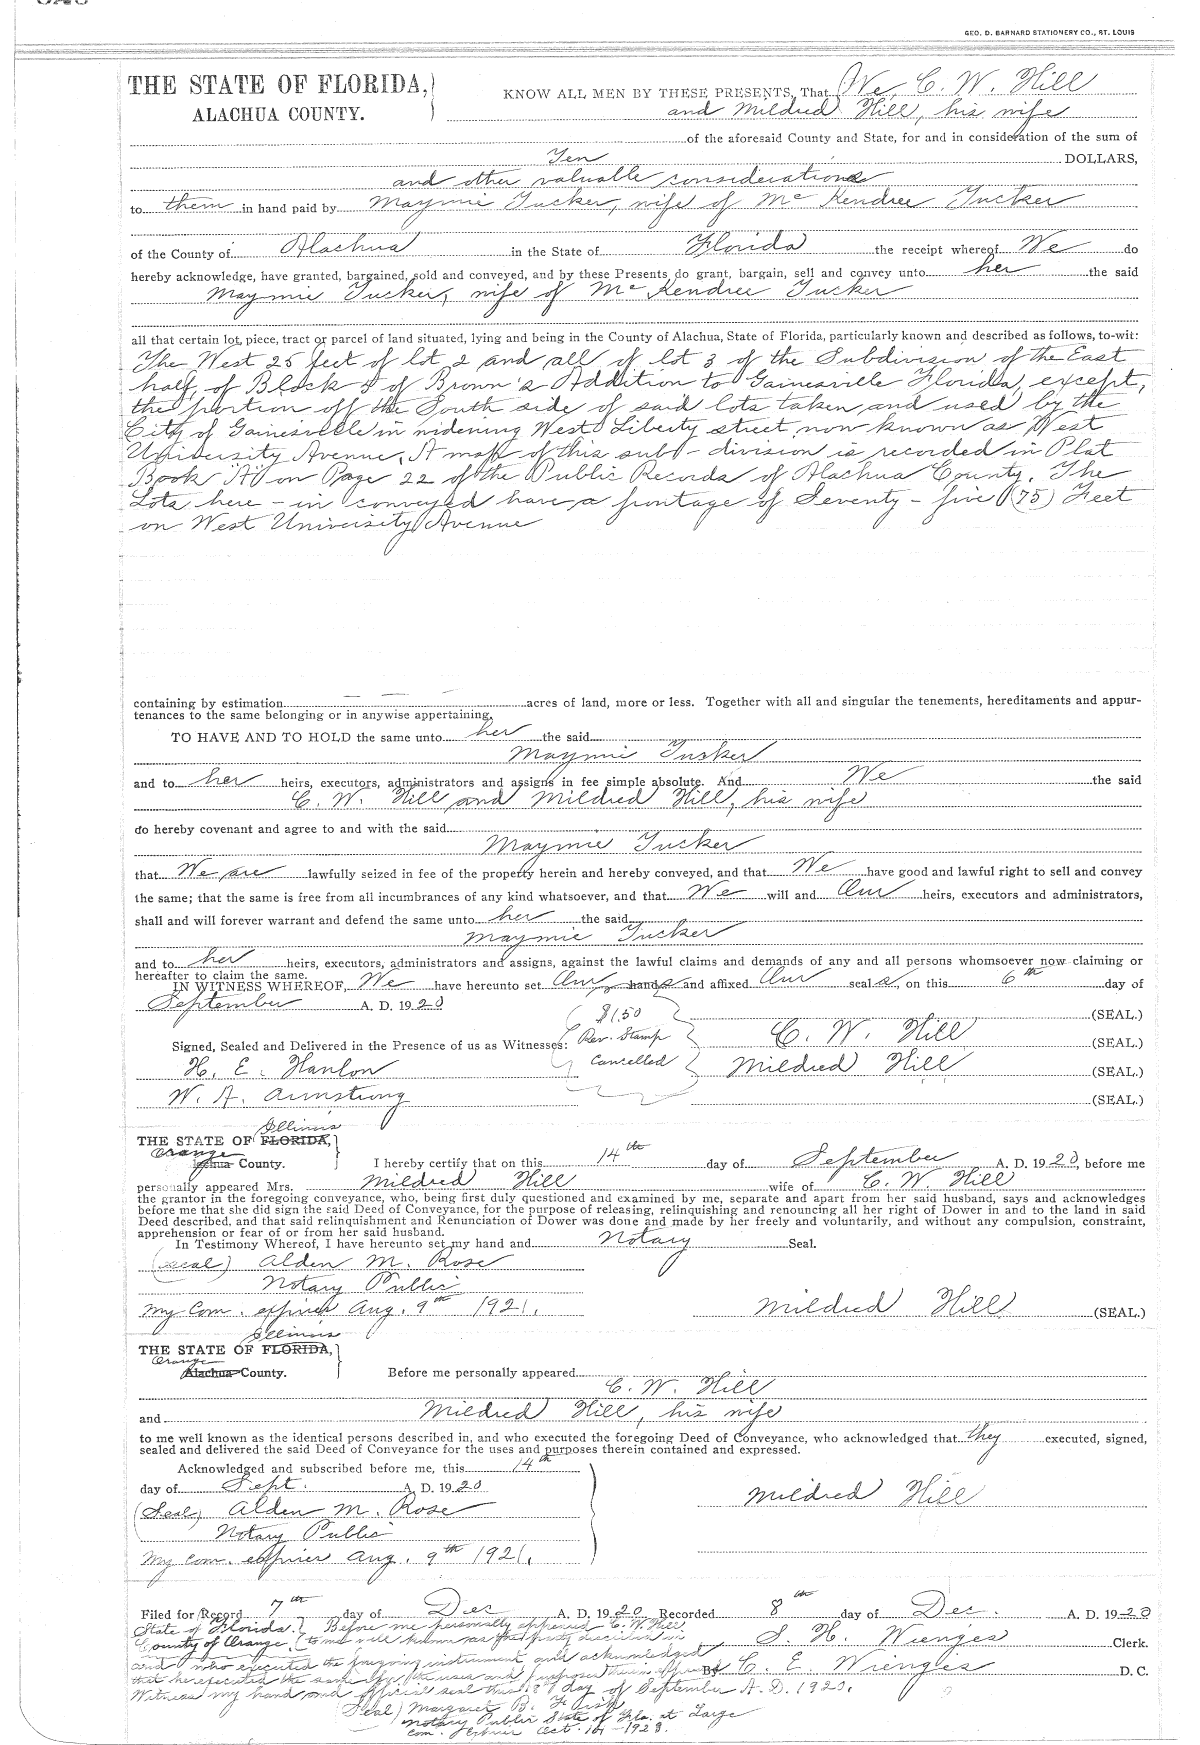 GEO. D. BARNARD STATIONERY CO., ST. LOUIS
THE STATE OF FLORIDA,
ALACHUA COUNTY.
KNOW ALL MEN BY THESE PRESENTS, That We, C. W. Hill
and Mildred Hill, his wife
of the aforesaid County and State, for and in consideration of the sum of
Ten DOLLARS,
and other valuable considerations
to them in hand paid by Maymie Tucker, wife of Mc Kendree Tucker
of the County of Alachua in the State of Florida the receipt whereof We do
hereby acknowledge, have granted, bargained, sold and conveyed, and by these Presents do grant, bargain, sell and convey unto her the said
Maymie Tucker, wife of Mc Kendree Tucker
all that certain lot, piece, tract or parcel of land situated, lying and being in the County of Alachua, State of Florida, particularly known and described as follows, to-wit:
The West 25 feet of lot 2 and all of lot 3 of the Subdivision of the East
half, of Block of Brown's Addition to Gainesville Florida, except,
the portion off the South side of said lots taken and used by the
City of Gainesville in widening West Liberty street now known as West
University Avenue, A map of this sub-division is recorded in Plat
Book "A" on Page 22 of the Public Records of Alachua County. The
Lots here-in conveyed have a frontage of Seventy-five (75) Feet
on West University Avenue
containing by estimation — — acres of land, more or less. Together with all and singular the tenements, hereditaments and appur-
tenances to the same belonging or in anywise appertaining.
TO HAVE AND TO HOLD the same unto her the said
Maymie Tucker
and to her heirs, executors, administrators and assigns in fee simple absolute. And We the said
C. W. Hill and Mildred Hill, his wife
do hereby covenant and agree to and with the said
Maymie Tucker
that We are lawfully seized in fee of the property herein and hereby conveyed, and that We have good and lawful right to sell and convey
the same; that the same is free from all incumbrances of any kind whatsoever, and that We will and Our heirs, executors and administrators,
shall and will forever warrant and defend the same unto her the said
Maymie Tucker
and to her heirs, executors, administrators and assigns, against the lawful claims and demands of any and all persons whomsoever now claiming or
hereafter to claim the same.
IN WITNESS WHEREOF, We have hereunto set Our hands and affixed Our seal s, on this 6th day of
September A. D. 1920
$1.50
Rev. Stamp
Cancelled
(SEAL.)
Signed, Sealed and Delivered in the Presence of us as Witnesses:
C. W. Hill (SEAL.)
H. E. Hanlon
Mildred Hill (SEAL.)
W. A. Armstrong
(SEAL.)
Illinois
THE STATE OF FLORIDA,
Orange
County.
I hereby certify that on this 14th day of September A. D. 1920, before me
personally appeared Mrs. Mildred Hill wife of C. W. Hill
the grantor in the foregoing conveyance, who, being first duly questioned and examined by me, separate and apart from her said husband, says and acknowledges
before me that she did sign the said Deed of Conveyance, for the purpose of releasing, relinquishing and renouncing all her right of Dower in and to the land in said
Deed described, and that said relinquishment and Renunciation of Dower was done and made by her freely and voluntarily, and without any compulsion, constraint,
apprehension or fear of or from her said husband.
In Testimony Whereof, I have hereunto set my hand and Notary Seal.
(seal) Alden M. Rose
Notary Public
My Com. expires Aug. 9th 1921.
Mildred Hill (SEAL.)
Illinois
THE STATE OF FLORIDA,
Orange
Alachua County.
Before me personally appeared
C. W. Hill
and Mildred Hill, his wife
to me well known as the identical persons described in, and who executed the foregoing Deed of Conveyance, who acknowledged that they executed, signed,
sealed and delivered the said Deed of Conveyance for the uses and purposes therein contained and expressed.
Acknowledged and subscribed before me, this 14th
day of Sept. A. D. 1920
(Seal) Alden M. Rose
Notary Public
My Com. expires Aug. 9th 1921.
Mildred Hill
Filed for Record 7th day of Dec A. D. 1920 Recorded 8th day of Dec. A. D. 1920
S. H. Wienges Clerk.
By C. E. Wienges D. C.
State of Florida. Before me personally appeared C. W. Hill
County of Orange. to me well known as the party described in
and who executed the foregoing instrument and acknowledged
that he executed the same for the uses and purposes therein expressed
Witness my hand and official seal this 8th day of September A. D. 1920.
(Seal) Margaret B.
Notary Public State of Fla. at Large
Com. Expires Oct. 1923.